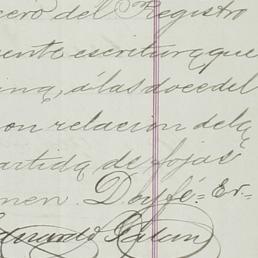 cero del Registro
ente escritura que
una, á las doce del
on relacion de la
artida de fojas
men. Doy fé = Er-